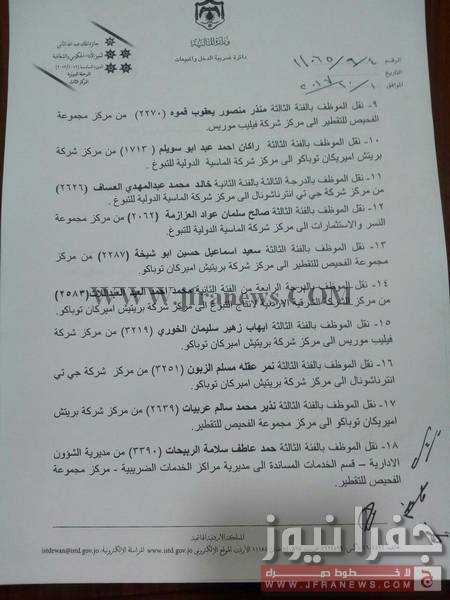 وزارة المالية
دائرة ضريبة الدخل والمبيعات
الرقم
التاريخ
الموافق
٩- نقل الموظف بالفئة الثالثة منذر منصور يعقوب قموه (٢٢٧٠) من مركز مجموعة
الفحيص للتقطير الى مركز شركة فيليب موريس.
١٠- نقل الموظف بالفئة الثالثة راكان احمد عبد ابو سويلم (١٧١٣) من مركز شركة
بريتش اميريكان توباكو الى مركز شركة الماسية الدولية للتبوغ.
١١- نقل الموظف بالدرجة الثالثة بالفئة الثانية خالد محمد عبدالمهدي العساف (٢٦٢٦)
من مركز شركة جي تي انترناشونال الى مركز شركة الماسية الدولية للتبوغ.
١٢- نقل الموظف بالفئة الثالثة صالح سلمان عواد العزازمة (٢٠٦٢) من مركز مجموعة
النسر والاستثمارات الى مركز شركة الماسية الدولية للتبوغ.
١٣- نقل الموظف بالفئة الثالثة سعيد اسماعيل حسين ابو شيخة (٢٢٨٧) من مركز
مجموعة الفحيص للتقطير الى مركز شركة بريتيش اميريكان توباكو.
١٤- نقل الموظف بالدرجة الرابعة من الفئة الثانية محمد احمد العبد (٢٥٨٣)
من مركز الشركة الشرقية الاردنية لانتاج التبوغ الى مركز شركة بريتيش اميريكان توباكو.
WWW.Jfranews.Com
١٥- نقل الموظف بالفئة الثالثة ايهاب زهير سليمان الخوري (٣٢١٩) من مركز شركة
فيليب موريس الى مركز شركة بريتيش اميريكان توباكو.
١٦- نقل الموظف بالفئة الثالثة نمر عقله مسلم الزبون (٣٢٥١) من مركز شركة جي تي
انترناشونال الى مركز شركة بريتيش اميريكان توباكو.
١٧- نقل الموظف بالفئة الثالثة نذير محمد سالم عربيات (٢٦٣٩) من مركز شركة بريتش
اميريكان توباكو الى مركز مجموعة الفحيص للتقطير.
١٨- نقل الموظف بالفئة الثالثة حمد عاطف سلامة الربيحات (٣٣٩٠) من مديرية الشؤون
الادارية – قسم الخدمات المساندة الى مديرية مراكز الخدمات الضريبية - مركز مجموعة
الفحيص للتقطير.
المملكة الأردنية الهاشمية
الأردن الموقع الإلكتروني: www.istd.gov.jo المراسلة الإلكترونية: istdewan@istd.gov.jo
جفرا نيوز
لا خطوط حمراء
WWW.JFRANEWS.COM